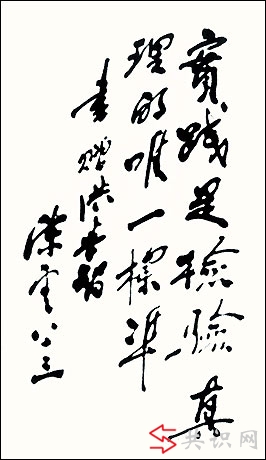 實踐是檢驗真
理的唯一標準
書贈洪
陳雲八三
共识网